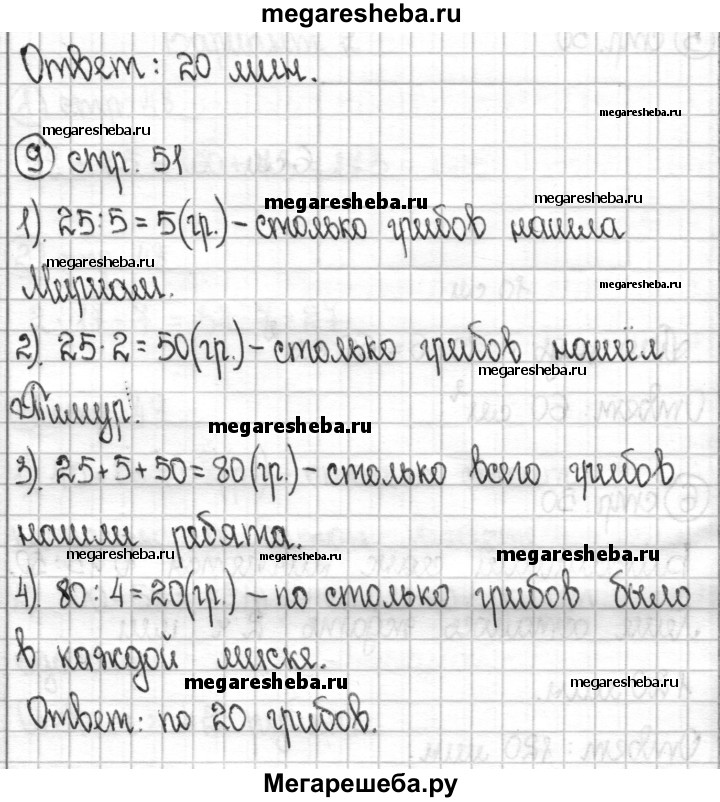 megaresheba.ru
Ответ: 20 мин.
megaresheba.ru
megaresheba.ru
9 стр. 51
megaresheba.ru
megaresheba.ru
1). 25:5=5(гр.)-столько грибов нашла
megaresheba.ru
Мириам.
2). 25·2=50(гр.)-столько грибов нашёл
megaresheba.ru
Тимур.
megaresheba.ru
3). 25+5+50=80(гр.)-столько всего грибов
нашли ребята.
megaresheba.ru
megaresheba.ru
megaresheba.ru
4). 80:4=20(гр.)-по столько грибов было
в каждой миске.
megaresheba.ru
megaresheba.ru
Ответ: по 20 грибов.
Мегарешеба.ру